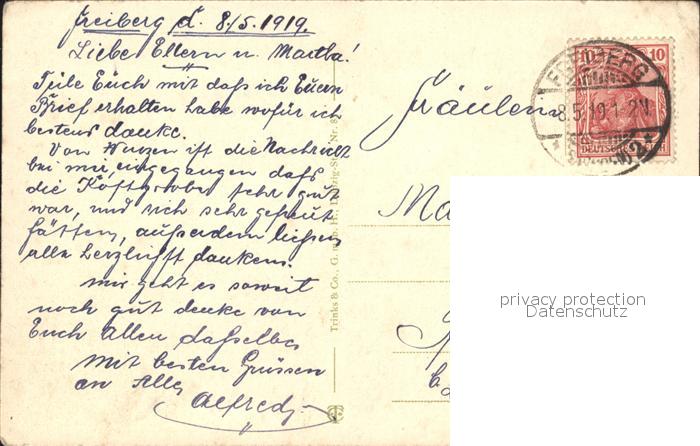 Freiberg d. 8./5. 1919.
Liebe Eltern u. Martha!
Teile Euch mit daß ich Euern
Brief erhalten habe wofür ich
bestens danke.
Von Wurzen ist die Nachricht
bei mir eingegangen daß
die sehr gut
war, und sich sehr gefreut
hätten, außerdem ließen
alle herzlichst danken.
Mir geht es soweit
noch gut denke von
Euch Allen dasselbe
Mit besten Grüssen
an Alle
Alfred
Trinks & Co., G. m. b. H., Leipzig
Fräulein
Ma
10 10
FREIBERG
8.5.19.1-2N
privacy protection
Datenschutz